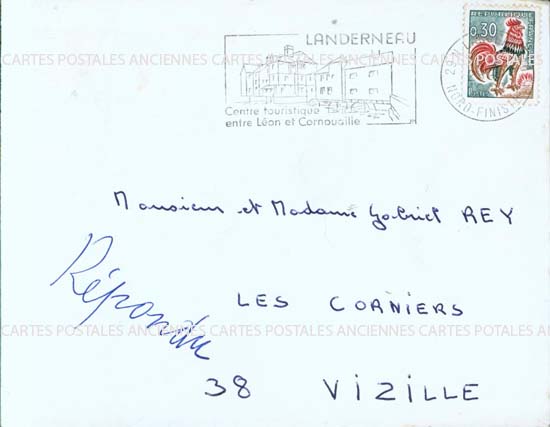 LANDERNEAU
REPUBLIQUE
0,30
Centre touristique
entre Léon et Cornouaille
NORD-FINISTE
CARTES POSTALES ANCIENNES CARTES POSTALES ANCIENNES CARTES POSTALES ANCIENNES
Monsieur et Madame Gabriel REY
Répondu
LES CORNIERS
CARTES POSTALES ANCIENNES CARTES POSTALES ANCIENNES CARTES POTALES ANCIENNES
38 VIZILLE